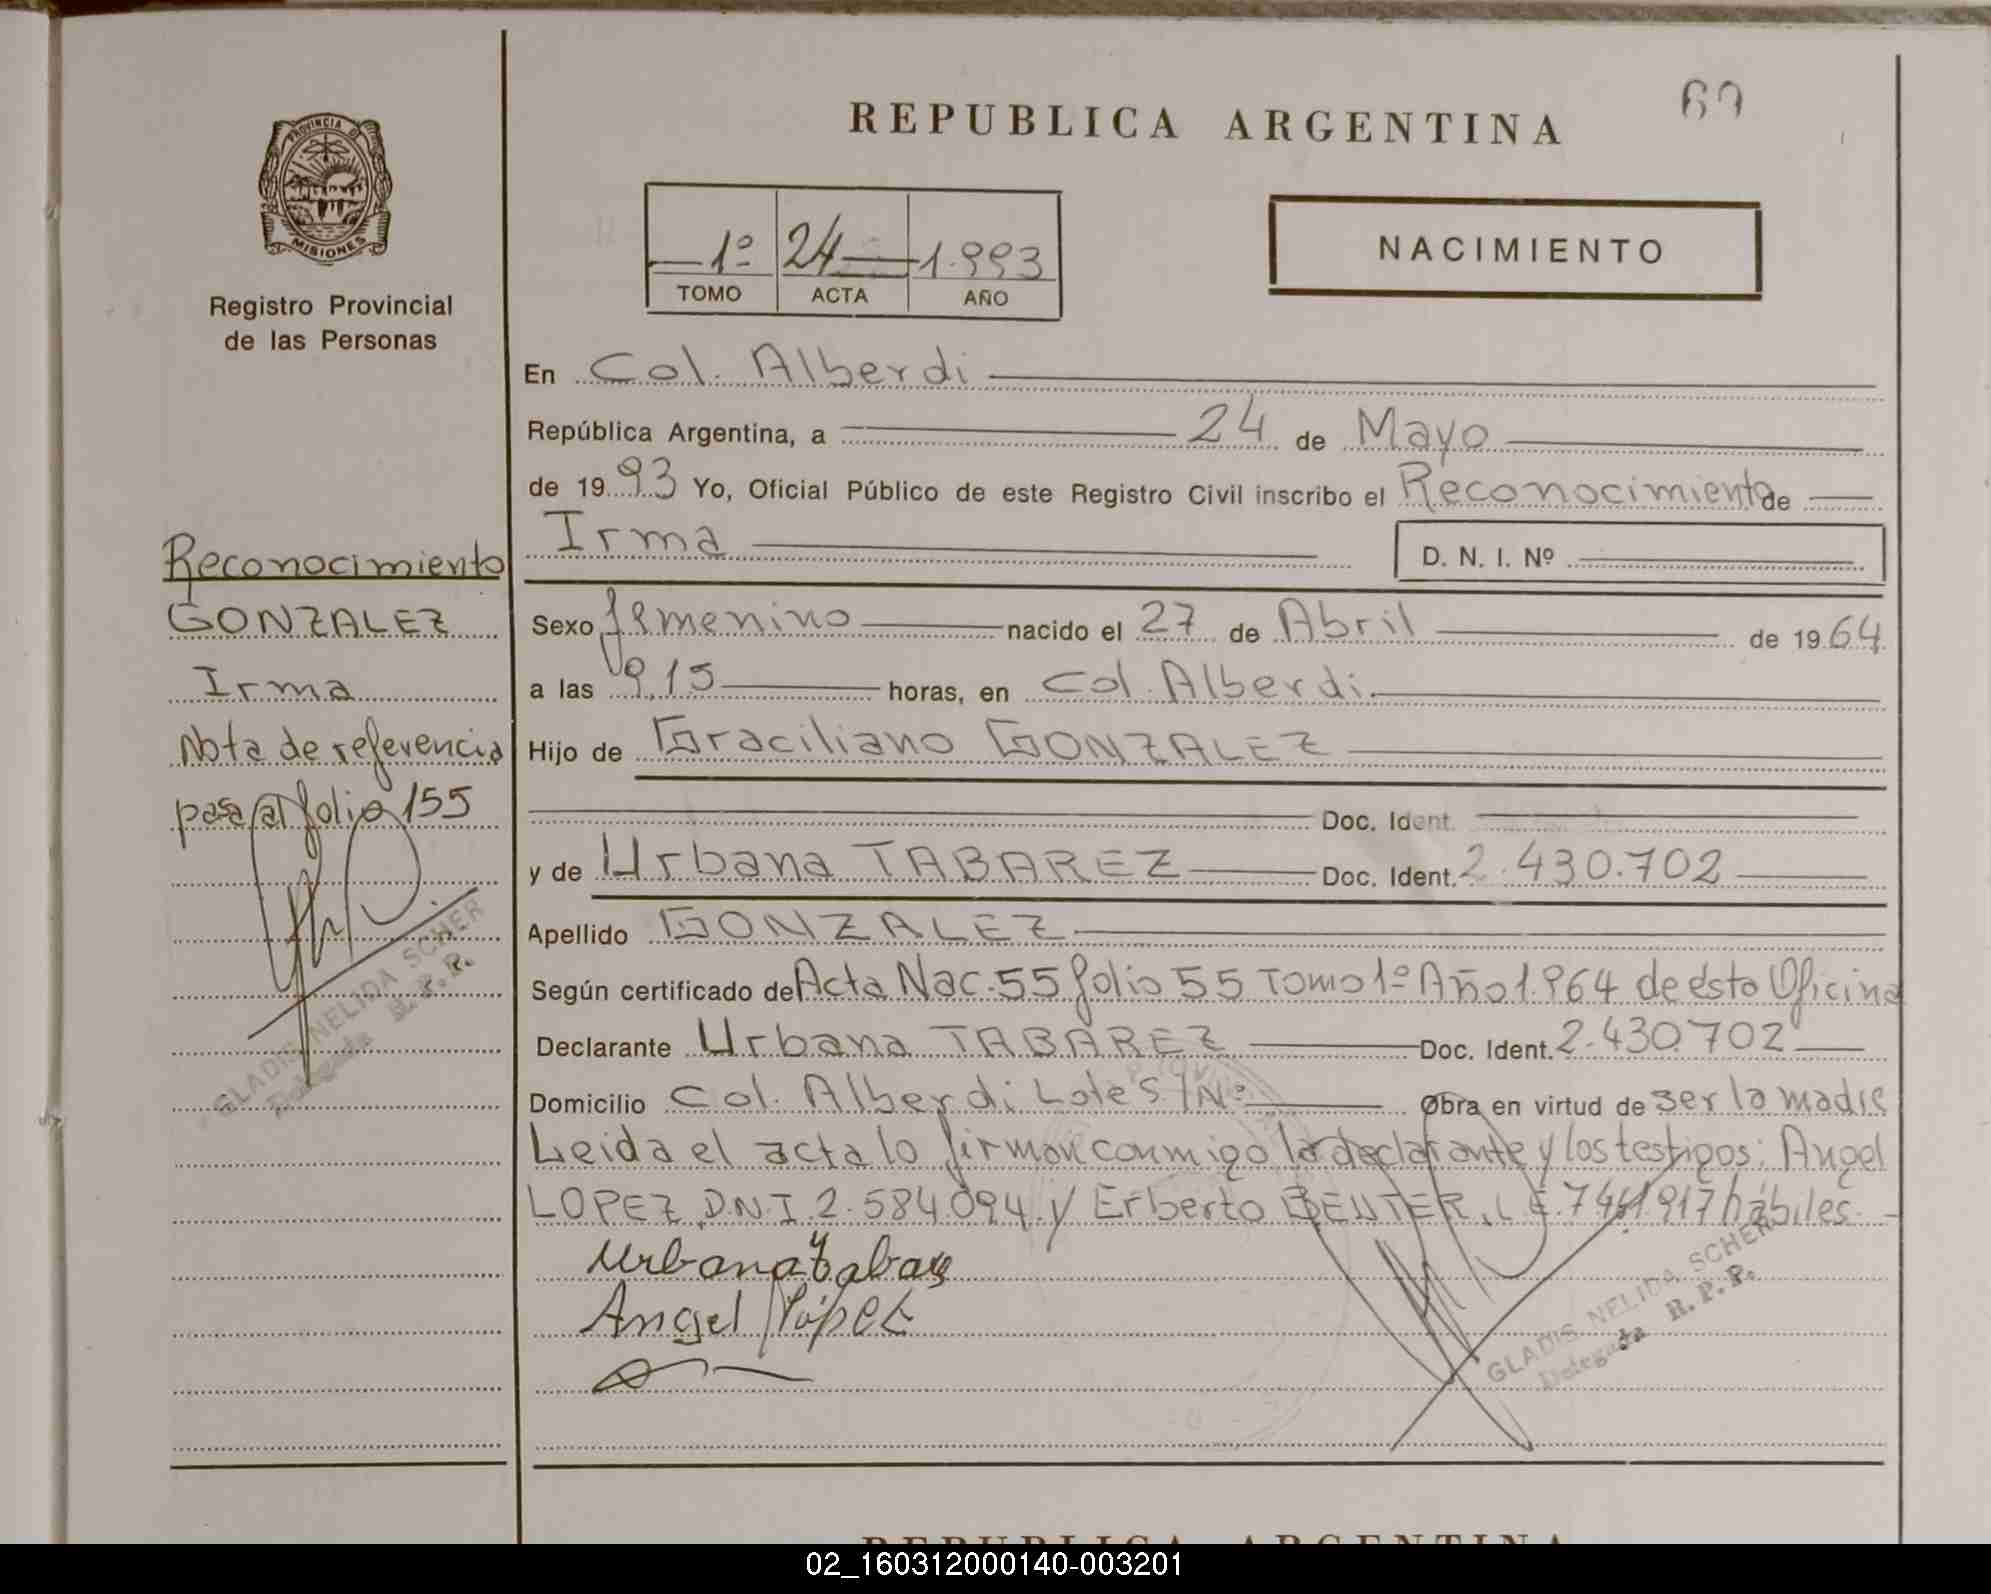 69
REPUBLICA ARGENTINA
PROVINCIA DE
MISIONES
Registro Provincial
de las Personas
1º 24 1.993
TOMO ACTA AÑO
NACIMIENTO
En Col. Alberdi
República Argentina, a 24 de Mayo
de 1993 Yo, Oficial Público de este Registro Civil inscribo el Reconocimiento de
Irma D. N. I. Nº
Sexo femenino nacido el 27 de Abril de 1964
a las 9,15 horas, en Col. Alberdi.
Hijo de Graciliano GONZALEZ
Doc. Ident.
y de Urbana TABAREZ Doc. Ident. 2.430.702
Apellido GONZALEZ
Según certificado de Acta Nac. 55 folio 55 Tomo 1º Año 1.964 de ésta Oficina
Declarante Urbana TABAREZ Doc. Ident. 2.430.702
Domicilio Col. Alberdi Lote S/Nº Obra en virtud de ser la madre
Leida el acta lo firman conmigo la declarante y los testigos: Angel
LOPEZ, D.N.I. 2.584.094 y Erberto BENTER, L.E. 7.441.917 hábiles.
Urbana tabarez
Angel López
GLADIS NELIDA SCHER
Delegada R.P.P.
Reconocimiento
GONZALEZ
Irma
Nota de referencia
pasa al folio 155
GLADIS NELIDA SCHER
Delegada R.P.P.
REPUBLICA ARGENTINA
02_160312000140-003201